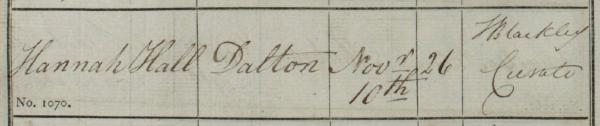 Hannah Hall Dalton Novr 26 TBlackley
10th Curate
No. 1070.